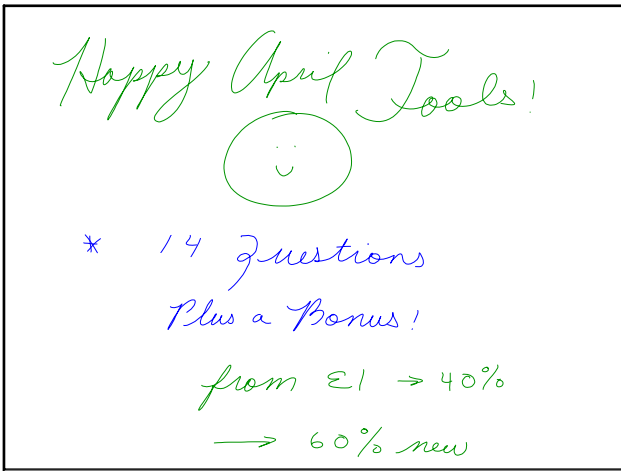 Happy April Fools!
* 14 Questions
Plus a Bonus!
from E1 → 40%
→ 60% new